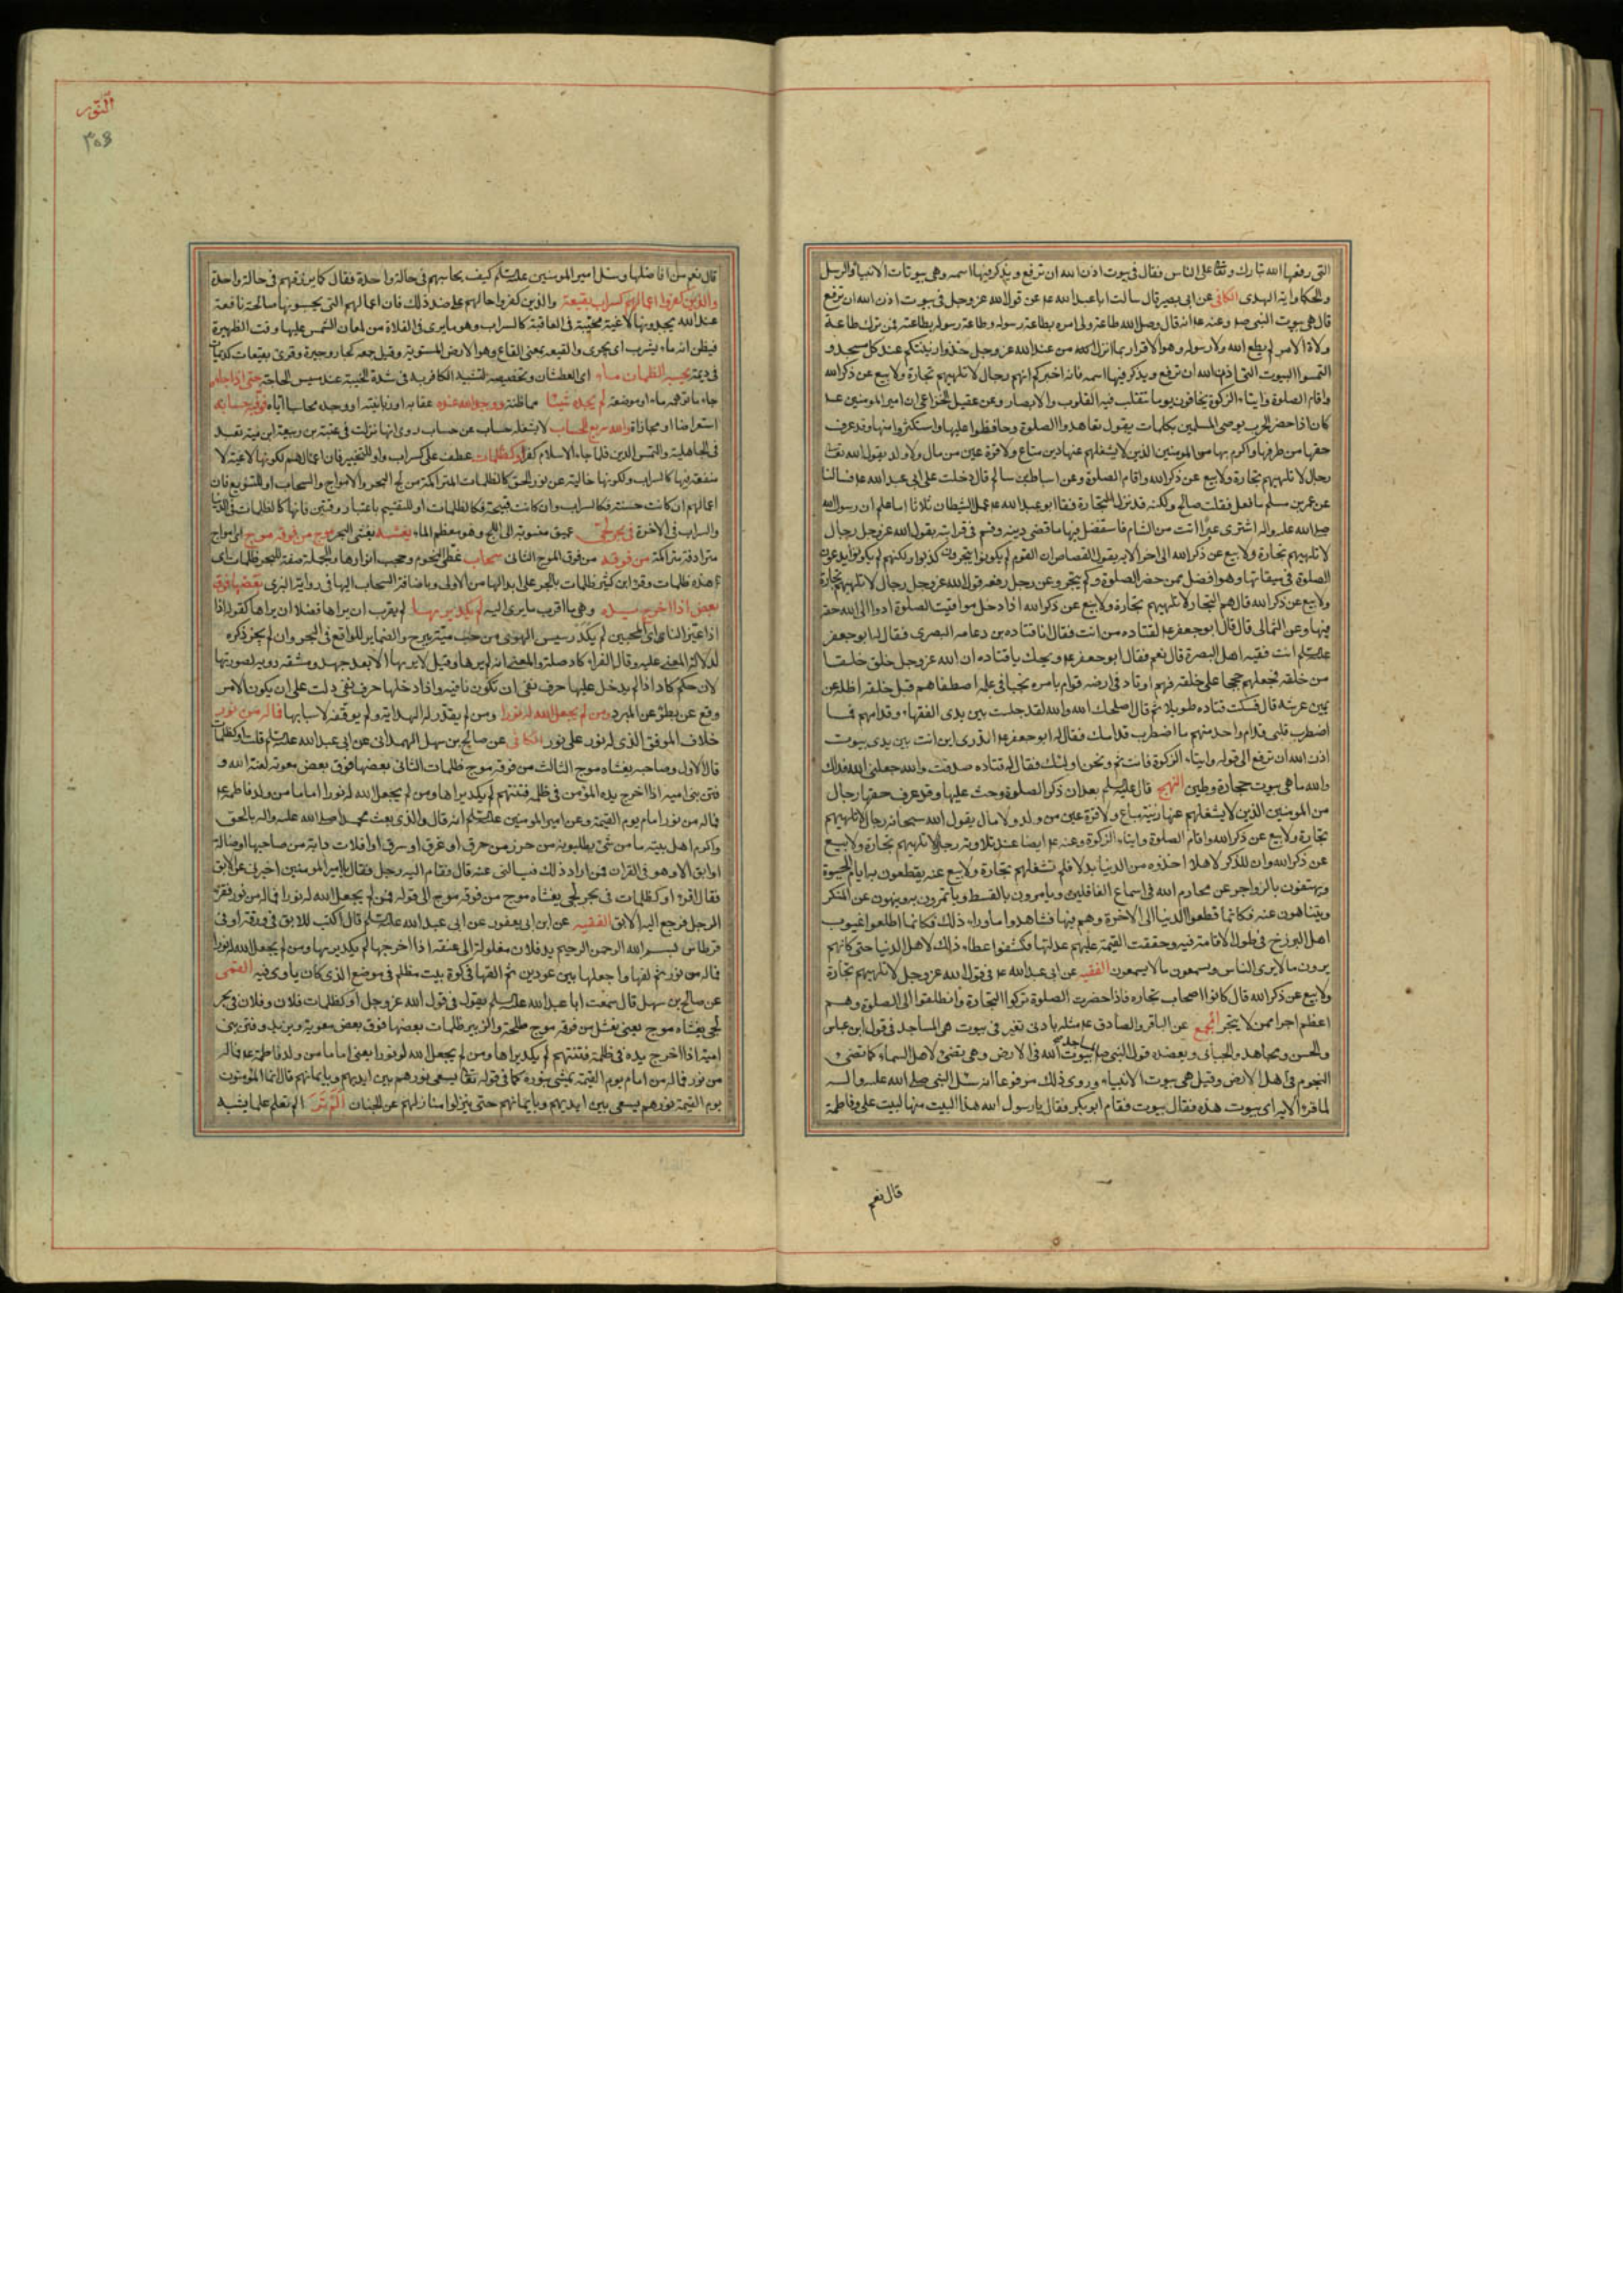 التی رفعها الله تبارک وتعالی علی الناس فقال فی بیوت اذن الله ان ترفع ویذکر فیها اسمه وهی بیوتات الانبیاء والرسل
والحکماء وایة الهدی الکافی عن ابی بصیر قال سالت اباعبدالله عم عن قول الله عز وجل فی بیوت اذن الله ان ترفع
قال هی بیوت النبی صلم وعنه عم انه قال وصل الله طاعة ولی امره بطاعة رسوله وطاعة رسوله بطاعته فمن ترک طاعة
ولاة الامر لم یطع الله ولا رسوله وهو الاقرار بما انزل من عند الله عز وجل خذوا زینتکم عند کل مسجد و
التمسوا البیوت التی اذن الله ان ترفع ویذکر فیها اسمه فانه اخبرکم انهم رجال لا تلهیهم تجارة ولا بیع عن ذکر الله
واقام الصلوة وایتاء الزکوة یخافون یوما تتقلب فیه القلوب والابصار وعن عقیل الخزاعی ان امیر المومنین عم
کان اذا حضر الحرب یوصی المسلمین بکلمات یقول تعاهدوا الصلوة وحافظوا علیها واستکثروا منها وقد عرف
حقها من طرقها واکرم بها من المومنین الذین لا یشغلهم عنها دین متاع ولا قرة عین من مال ولا ولد یقول الله تعا
رجال لا تلهیهم تجارة ولا بیع عن ذکر الله واقام الصلوة وعن اسباط بن سالم قال دخلت علی ابی عبدالله عم فسالنا
عن عمر بن مسلم ما فعل فقلت صالح ولکنه قد ترک التجارة فقال ابو عبدالله عم عمل الشیطان ثلاثا اما علم ان رسول الله
صلی الله علیه واله اشتری عیرا اتت من الشام فاستفضل فیها ما قضی دینه وقسم فی قرابته یقول الله عز وجل رجال
لا تلهیهم تجارة ولا بیع عن ذکر الله الی اخر الایة یقول القصاص ان القوم لم یکونوا یتجرون کذبوا ولکنهم لم یکونوا یدعون
الصلوة فی میقاتها وهو افضل ممن حضر الصلوة ولم یتجر وعن رجل رفعه قول الله عز وجل رجال لا تلهیهم تجارة
ولا بیع عن ذکر الله قال هم التجار لا تلهیهم تجارة ولا بیع عن ذکر الله اذا دخل مواقیت الصلوة ادوا الی الله حقه
فیها وعن الثمالی قال قال ابو جعفر عم لقتاده من انت فقال انا قتاده بن دعامه البصری فقال له ابو جعفر
علیه السلم انت فقیه اهل البصرة قال نعم فقال ابو جعفر عم ویحک یا قتاده ان الله عز وجل خلق خلقا
من خلقه فجعلهم حججا علی خلقه فهم اوتاد فی ارضه قوام بامره نجباء فی علمه اصطفاهم قبل خلقه اظلة عن
یمین عرشه قال فسکت قتاده طویلا ثم قال اصلحک الله والله لقد جلست بین یدی الفقهاء وقدامهم فما
اضطرب قلبی قدام واحد منهم ما اضطرب قدامک فقال له ابو جعفر عم اتدری این انت بین یدی بیوت
اذن الله ان ترفع الی قوله وایتاء الزکوة فانت ثم ونحن اولئک فقال له قتاده صدقت والله جعلنی الله فداک
والله ما هی بیوت حجارة وطین النهج قال علیه السلم بعد ان ذکر الصلوة وحث علیها وقد عرف حقها رجال
من المومنین الذین لا یشغلهم عنها زینة متاع ولا قرة عین من ولد ولا مال یقول الله سبحانه رجال لا تلهیهم
تجارة ولا بیع عن ذکر الله واقام الصلوة وایتاء الزکوة وعنه عم ایضا عند تلاوته رجال لا تلهیهم تجارة ولا بیع
عن ذکر الله وان للذکر لاهلا اخذوه من الدنیا بدلا فلم تشغلهم تجارة ولا بیع عنه یقطعون به ایام الحیوة
ویهتفون بالزواجر عن محارم الله فی اسماع الغافلین ویامرون بالقسط ویاتمرون به وینهون عن المنکر
ویتناهون عنه فکانما قطعوا الدنیا الی الاخرة وهم فیها فشاهدوا ما وراء ذلک فکانما اطلعوا غیوب
اهل البرزخ فی طول الاقامة فیه وحققت القیمة علیهم عداتها فکشفوا غطاء ذلک لاهل الدنیا حتی کانهم
یرون ما لا یری الناس ویسمعون ما لا یسمعون الفقیه عن ابی عبدالله عم فی قول الله عز وجل لا تلهیهم تجارة
ولا بیع عن ذکر الله قال کانوا اصحاب تجاره فاذا حضرت الصلوة ترکوا التجارة وانطلقوا الی الصلوة وهم
اعظم اجرا ممن لا یتجر المجمع عن الباقر والصادق عم مثله بادنی تغیر فی بیوت هی المساجد فی قول ابن عباس
والحسن ومجاهد والجبائی ویعضده قول النبی صلم المساجد بیوت الله فی الارض وهی تضیء لاهل السماء کما تضیء
النجوم فی اهل الارض وقیل هی بیوت الانبیاء وروی ذلک مرفوعا انه سئل النبی صلی الله علیه واله
لما قرء الایه ای بیوت هذه فقال بیوت فقام ابوبکر فقال یا رسول الله هذا البیت منها لبیت علی وفاطمة
قال نعم
النور
قال نعم من افاضلها وسئل امیر المومنین علیه السلم کیف یحاسبهم فی حالة واحدة فقال کما یرزقهم فی حالة واحدة
والذین کفروا اعمالهم کسراب بقیعة والذین کفروا حالهم علی ضد ذلک فان اعمالهم التی یحسبونها صالحة نافعة
عند الله یجدونها لاغیة مخیبة فی العاقبة کالسراب وهو ما یری فی الفلاة من لمعان الشمس علیها وقت الظهیرة
فیظن انه ماء یسرب ای یجری والقیعه بمعنی القاع وهو الارض المستویة وقیل جمعه کجار وجیرة وقری بقیعات کدیمات
فی دیمة یحسبه الظمان ماء ای العطشان وتخصیصه لتشبیه الکافر به فی شدة الخیبة عند مسیس الحاجة حتی اذا جاءه
جاء ما توهمه ماء او موضعه لم یجده شیئا مما ظنه ووجد الله عنده عقابه او زبانیته او وجده محاسبا ایاه فوفیه حسابه
استعراضا او مجازاة والله سریع الحساب لا یشغله حساب عن حساب روی انها نزلت فی عتبة بن ربیعة ابن امیة تعبد
فی الجاهلیة والتمس الدین فلما جاء الاسلام کفر او کظلمات عطف علی کسراب واو للتخییر فان اعمالهم لکونها لاغیة لا
منفعة فیها کالسراب ولکونها خالیة عن نور الحق کالظلمات المتراکمة من لج البحر والامواج والسحاب او للتنویع فان
اعمالهم ان کانت حسنة فکالسراب وان کانت قبیحة فکالظلمات او للتقسیم باعتبار وقتین فانها کالظلمات فی الدنیا
والسراب فی الاخرة فی بحر لجی عمیق منسوب الی اللج وهو معظم الماء یغشیه یغشی البحر موج من فوقه موج ای امواج
مترادفة متراکمة من فوقه من فوق الموج الثانی سحاب غطی النجوم وحجب انوارها والجملة صفة للبحر ظلمات ای
هذه ظلمات وقرا ابن کثیر ظلمات بالجر علی ابدالها من الاولی وباضافة السحاب الیها فی روایة البزی بعضها فوق
بعض اذا اخرج یده وهی ما اقرب ما یری الیه لم یکد یریها لم یقرب ان یراها فضلا ان یراها کقوله اذا
اذا غیر النای المحبین لم یکد رسیس الهوی من حب میة یبرح والضمایر للواقع فی البحر وان لم یجر ذکره
لدلالة المعنی علیه وقال الفراء کاد صلة والمعنی انه لم یرها وقیل لا یریها الا بعد جهد ومشقه رویه لصورتها
لان حکم کاد اذا لم یدخل علیها حرف نفی ان تکون نافیه واذا دخلها حرف نفی دلت علی ان یکون الامر
وقع عن بطؤ عن المبرد ومن لم یجعل الله له نورا ومن لم یقدر له الهدایة ولم یوفقه لاسبابها فما له من نور
خلاف الموفق الذی له نور علی نور الکافی عن صالح بن سهل الهمدانی عن ابی عبدالله علیه السلم قلت او کظلمات
قال الاول وصاحبه یغشاه موج الثالث من فوقه موج ظلمات الثانی بعضها فوق بعض معویة لعنه الله و
فتن بنی امیه اذا اخرج یده المؤمن فی ظلمة فتنتهم لم یکد یراها ومن لم یجعل الله له نورا اماما من ولد فاطمة عم
فما له من نور امام یوم القیمة وعن امیر المومنین علیه السلم انه قال والذی بعث محمدا صلی الله علیه واله بالحق
واکرم اهل بیته ما من شیء یطلبونه من حرز من حرق او غرق او سرق او افلات دابة من صاحبها او ضالة
او ابق الا وهو فی القران فمن اراد ذلک فیسالنی عنه قال فقام الیه رجل فقال یا امیر المومنین اخبرنی عن الابق
فقال اقرء او کظلمات فی بحر لجی یغشاه موج من فوقه موج الی قوله فمن لم یجعل الله له نورا فما له من نور فقراه
الرجل فرجع الیه الابق الفقیه عن ابن ابی یعفور عن ابی عبدالله علیه السلم قال اکتب للابق فی ورقة او فی
قرطاس بسم الله الرحمن الرحیم ید فلان مغلولة الی عنقه اذا اخرجها لم یکد یریها ومن لم یجعل الله له نورا
فما له من نور ثم لفها واجعلها بین عودین ثم القها فی کوة بیت مظلم فی موضع الذی کان یاوی فیه القمی
عن صالح بن سهل قال سمعت ابا عبدالله علیه السلم یقول فی قول الله عز وجل او کظلمات فلان وفلان فی بحر
لجی یغشاه موج یعنی نعثل من فوقه موج طلحة والزبیر ظلمات بعضها فوق بعض معویة ویزید وفتن بنی
امیة اذا اخرج یده فی ظلمة فتنتهم لم یکد یراها ومن لم یجعل الله له نورا یعنی اماما من ولد فاطمة عم فما له
من نور فما له من امام یوم القیمة یمشی بنوره کما فی قوله تعا یسعی نورهم بین ایدیهم وبایمانهم قال انما المومنون
یوم القیمة نورهم یسعی بین ایدیهم وبایمانهم حتی ینزلوا منازلهم عن الجنان الم تر الم تعلم علما یشبه